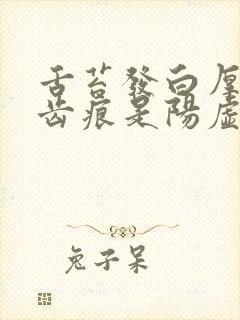 舌苔發白厚
齒痕是陽虛
兔子呆